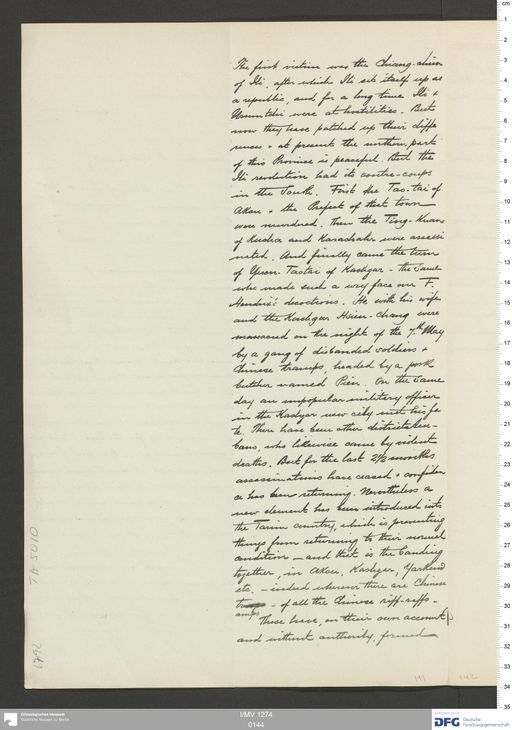 The first victim was the Chiang-chün
of Ili, after which Ili set itself up as
a republic, and for a long time Ili +
Urumtchi were at hostilities. But
now they have patched up their diffe
rences + at present the northern part
of this Province is peaceful. But the
Ili revolution had its contre-coups
in the South. First the Tao-tai of
Aksu + the Prefect of that town
were murdered. Then the Ting-Kuan
of Kucha and Karashahr were assassi
nated. And finally came the turn
of Yuan Taotai of Kashgar - the same
who made such a wry face over F.
Hendrix's devotions. He with his wife
and the Kashgar Hsien-Chang were
massacred on the night of the 7th May
by a gang of disbanded soldiers +
Chinese tramps, headed by a pork
butcher named Pien. On the same
day an unpopular military officer
in the Kashgar new city met his fa
te. There have been other
who likewise came by violent
deaths. But for the last 2½ months
assassinations have ceased + confiden
ce has been returning. Nevertheless a
new element has been introduced into
the Tarim country, which is preventing
things from returning to their normal
condition - and that is the banding
together, in Aksu, Kashgar, Yarkand
etc. - indeed wherever there are Chinese
amps - of all the Chinese riff-raffs -
These have, on their own account
and without authority, formed
TA 5010
3792
141
142
I/MV 1274
0144
Ethnologisches Museum
Staatliche Museen zu Berlin
DFG Deutsche
Forschungsgemeinschaft